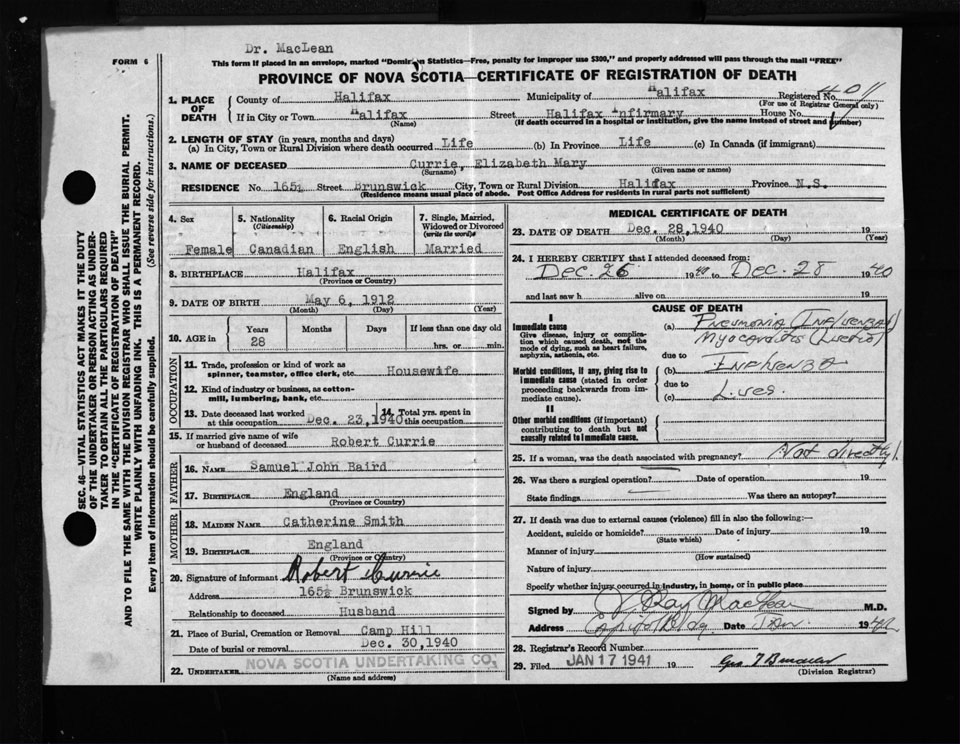 Dr. MacLean
FORM 6
This form if placed in an envelope, marked "Dominion Statistics—Free, penalty for improper use $300," and properly addressed will pass through the mail "FREE"
PROVINCE OF NOVA SCOTIA—CERTIFICATE OF REGISTRATION OF DEATH
1. PLACE OF DEATH
County of Halifax Municipality of Halifax Registered No. 4011
(For use of Registrar General only)
If in City or Town Halifax Street Halifax Infirmary House No.
(Name) (If death occurred in a hospital or institution, give the name instead of street and number)
2. LENGTH OF STAY (in years, months and days)
(a) In City, Town or Rural Division where death occurred Life (b) In Province Life (c) In Canada (if immigrant)
3. NAME OF DECEASED Currie, Elizabeth Mary
(Surname) (Given name or names)
RESIDENCE No. 165½ Street Brunswick City, Town or Rural Division Halifax Province N.S.
(Residence means usual place of abode. Post Office Address for residents in rural parts not sufficient)
4. Sex 5. Nationality (Citizenship) 6. Racial Origin 7. Single, Married, Widowed or Divorced (write the word)
Female Canadian English Married
8. BIRTHPLACE Halifax
(Province or Country)
9. DATE OF BIRTH May 6, 1912
(Month) (Day) (Year)
10. AGE in Years Months Days If less than one day old
28 hrs. or min.
OCCUPATION
11. Trade, profession or kind of work as spinner, teamster, office clerk, etc. Housewife
12. Kind of industry or business, as cotton-mill, lumbering, bank, etc.
13. Date deceased last worked at this occupation Dec. 23, 1940 14. Total yrs. spent in this occupation
15. If married give name of wife or husband of deceased Robert Currie
FATHER
16. NAME Samuel John Baird
17. BIRTHPLACE England
(Province or Country)
MOTHER
18. MAIDEN NAME Catherine Smith
19. BIRTHPLACE England
(Province or Country)
20. Signature of informant Robert Currie
Address 165½ Brunswick
Relationship to deceased Husband
21. Place of Burial, Cremation or Removal Camp Hill
Date of burial or removal Dec. 30, 1940
22. UNDERTAKER NOVA SCOTIA UNDERTAKING CO.
(Name and address)
MEDICAL CERTIFICATE OF DEATH
23. DATE OF DEATH Dec. 28, 1940 19
(Month) (Day) (Year)
24. I HEREBY CERTIFY that I attended deceased from:
Dec 26 1940 to Dec. 28 1940
and last saw h alive on 19
CAUSE OF DEATH
I
Immediate cause
Give disease, injury or complication which caused death, not the mode of dying, such as heart failure, asphyxia, asthenia, etc.
(a) Pneumonia (Influenzal)
Myocarditis (Luetic)
due to
Morbid conditions, if any, giving rise to immediate cause (stated in order proceeding backwards from immediate cause).
(b) Influenza
due to
(c) Lues.
II
Other morbid conditions (if important) contributing to death but not causally related to immediate cause.
25. If a woman, was the death associated with pregnancy? Not directly.
26. Was there a surgical operation? Date of operation 19
State findings Was there an autopsy?
27. If death was due to external causes (violence) fill in also the following:—
Accident, suicide or homicide? Date of injury 19
(State which)
Manner of injury
(How sustained)
Nature of injury
Specify whether injury occurred in industry, in home, or in public place
Signed by J. Ray MacLean M.D.
Address Capitol Bldg Date Jan. 19
28. Registrar's Record Number
29. Filed JAN 17 1941 19
(Division Registrar)
SEC. 46—VITAL STATISTICS ACT MAKES IT THE DUTY
OF THE UNDERTAKER OR PERSON ACTING AS UNDER-
TAKER TO OBTAIN ALL THE PARTICULARS REQUIRED
IN THE "CERTIFICATE OF REGISTRATION OF DEATH"
AND TO FILE THE SAME WITH THE DIVISION REGISTRAR WHO SHALL ISSUE THE BURIAL PERMIT.
WRITE PLAINLY WITH UNFADING INK. THIS IS A PERMANENT RECORD.
Every item of information should be carefully supplied. (See reverse side for instructions.)